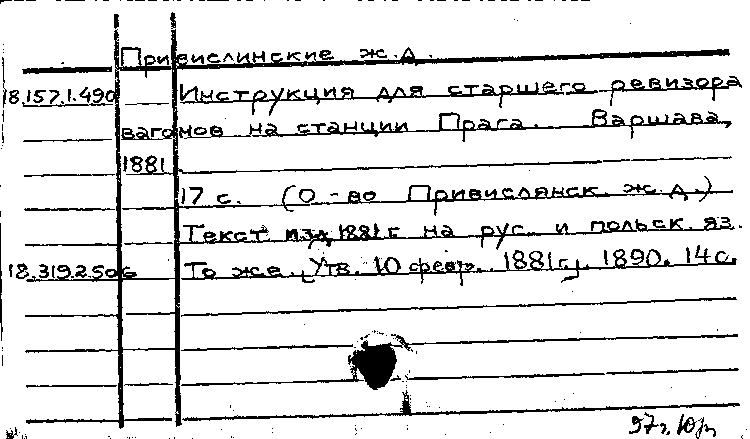 Привислинские ж.д.
18.157.1.490 Инструкция для старшего ревизора
вагонов на станции Прага. Варшава,
1881.
17 с. (О-во Привислянск. ж.д.)
Текст изд. 1881 г. на рус. и польск. яз.
18.319.2.506 То же. [Утв. 10 февр. 1881 г.]. 1890. 14 с.
97 г.